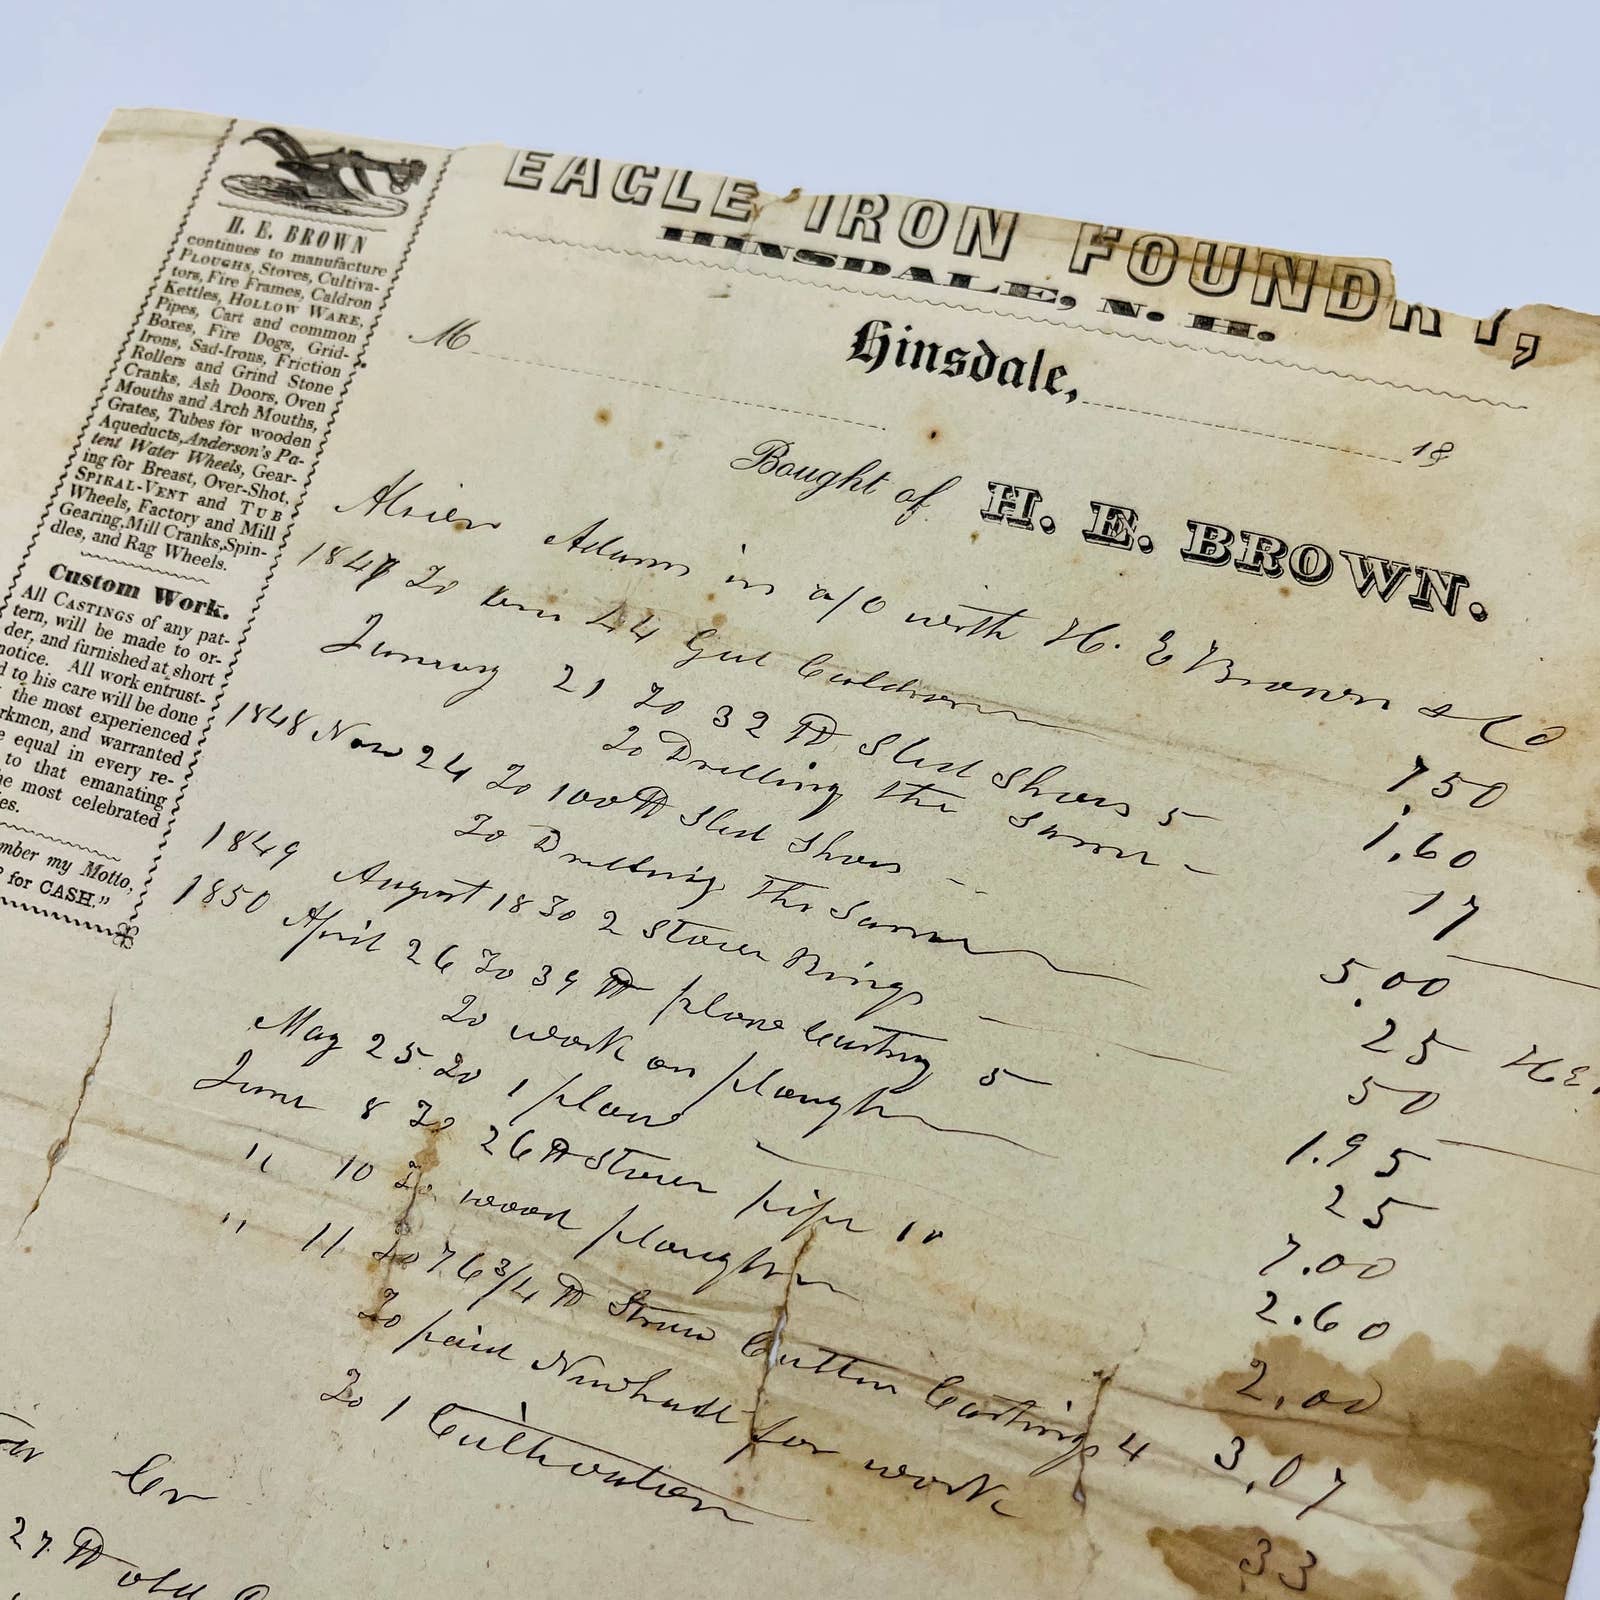 EAGLE IRON FOUNDRY,
HINSDALE, N. H.
Hinsdale, 18
M
Bought of H. E. BROWN.
H. E. BROWN
continues to manufacture
PLOUGHS, Stoves, Cultiva-
tors, Fire Frames, Caldron
Kettles, HOLLOW WARE,
Pipes, Cart and common
Boxes, Fire Dogs, Grid-
Irons, Sad-Irons, Friction
Rollers and Grind Stone
Cranks, Ash Doors, Oven
Mouths and Arch Mouths,
Grates, Tubes for wooden
Aqueducts, Anderson's Pa-
tent Water Wheels, Gear-
ing for Breast, Over-Shot,
SPIRAL-VENT and TUB
Wheels, Factory and Mill
Gearing, Mill Cranks, Spin-
dles, and Rag Wheels.
Custom Work.
All CASTINGS of any pat-
tern, will be made to or-
der, and furnished at short
notice. All work entrust-
d to his care will be done
the most experienced
rkmen, and warranted
e equal in every re-
to that emanating
he most celebrated
es.
mber my Motto,
for CASH."
Adams in a/c with H. E Brown & Co
1847 To 44 Gal Caldron 7 50
January 21 To 32 lb Sled Shoes 5 1.60
To Drilling the Same 17
1848 Nov 24 To 100 lb Sled Shoes 5.00
To Drilling the Same 25
1849 August 18 To 2 Stove Rings 50
1850 April 26 To 39 lb plow Casting 5 1.95
To work on plough 25
May 25 To 1 plow 7.00
June 8 To 26 lb Stove pipe 10 2.60
" 10 To wood plough 2.00
" 11 To 76 3/4 lb Straw Cutter Castings 4 3.07
To paid for work 33
To 1 Cultivator
Cr
27 lb old